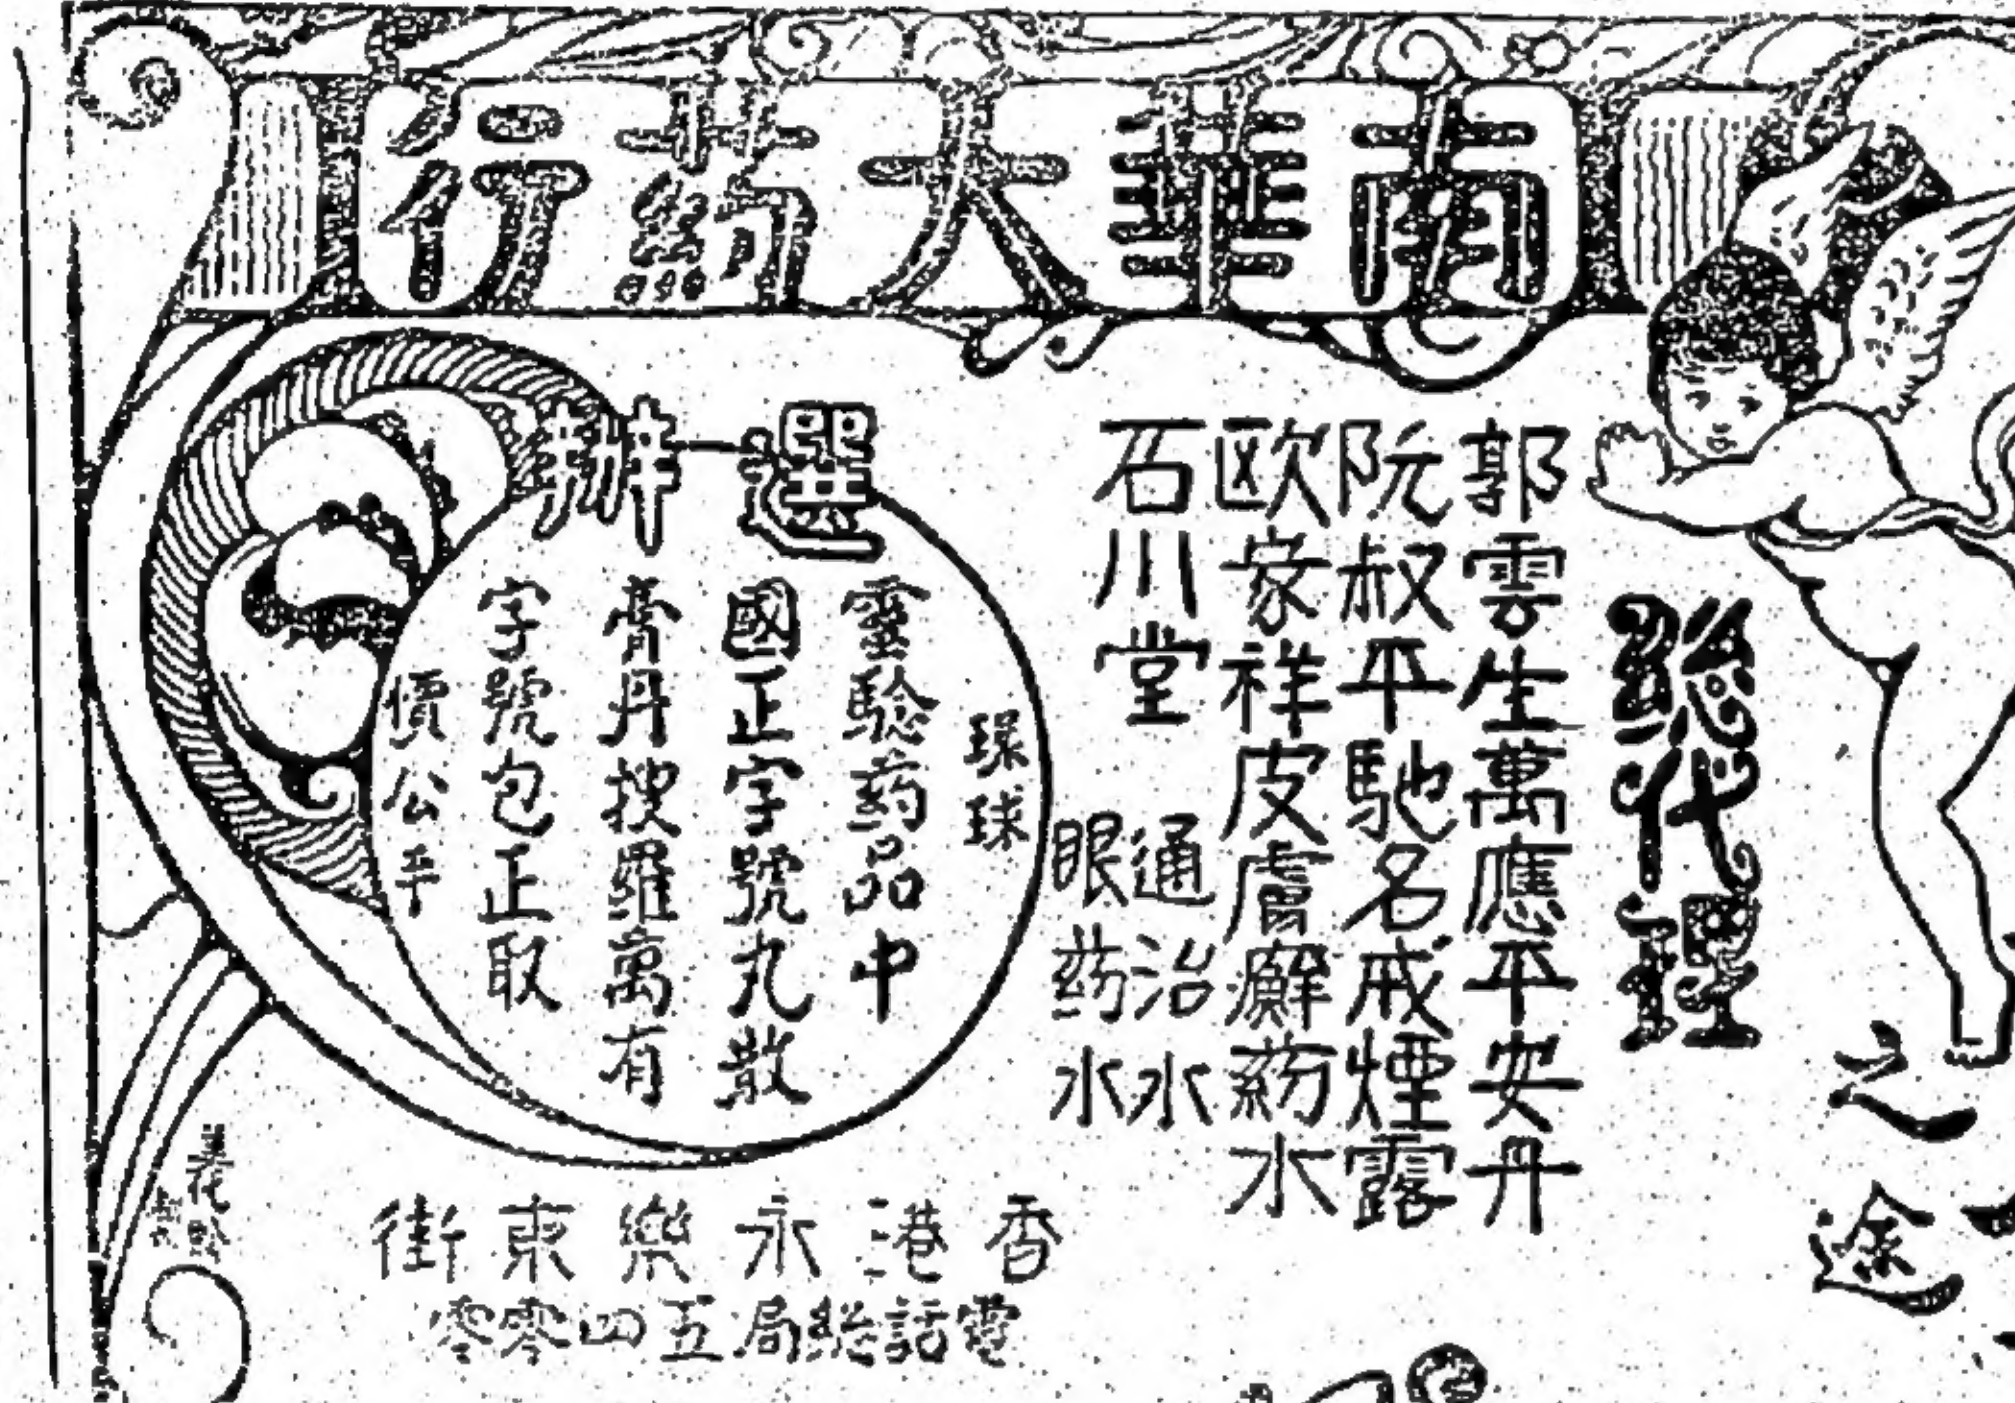 南華大葯行
之途
總代理
郭雲生萬應平安丹
阮叔平馳名戒煙露
歐家祥皮膚癬葯水
石川堂
通治水
眼葯水
選辦
環球
靈驗葯品中
國正字號丸散
膏丹搜羅萬有
字號包正取
價公平
香港永樂東街
電話總局五四零零